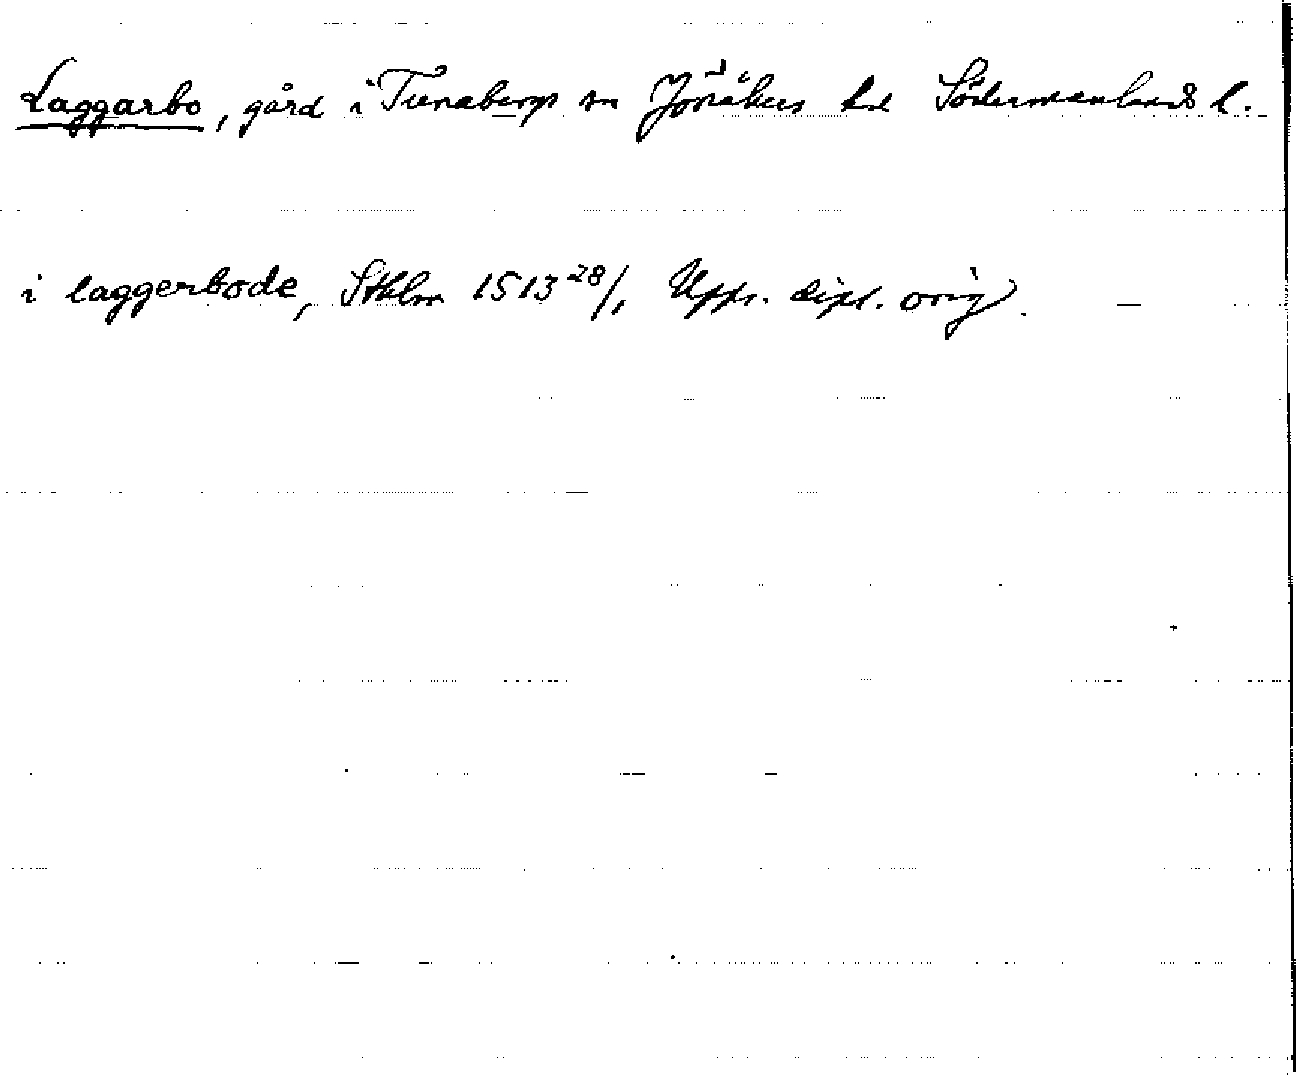 Laggarbo, gård i Tunabergs sn Jönåkers hd Södermanlands l.
i laggerbode, Sthlm 1513 28/1 Upps. dipl. orig.